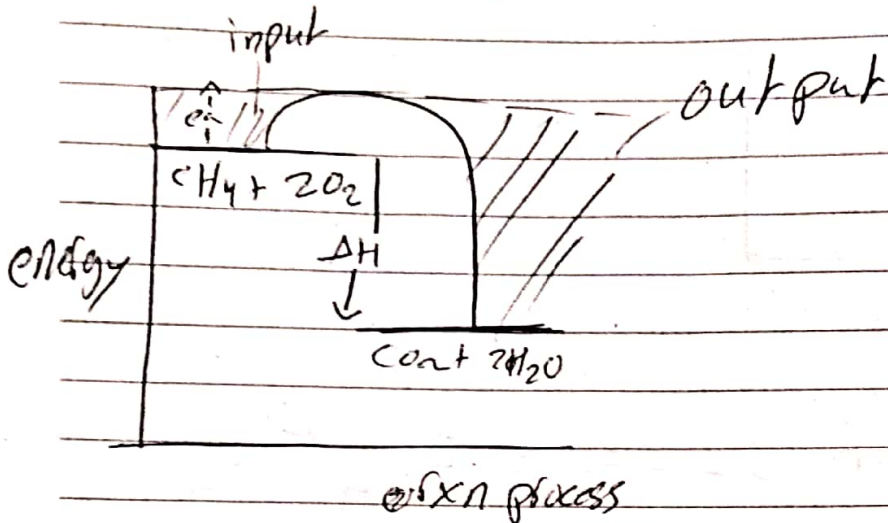 input
output
CH4 + 2O2
energy
ΔH
CO2 + 2H2O
rxn process